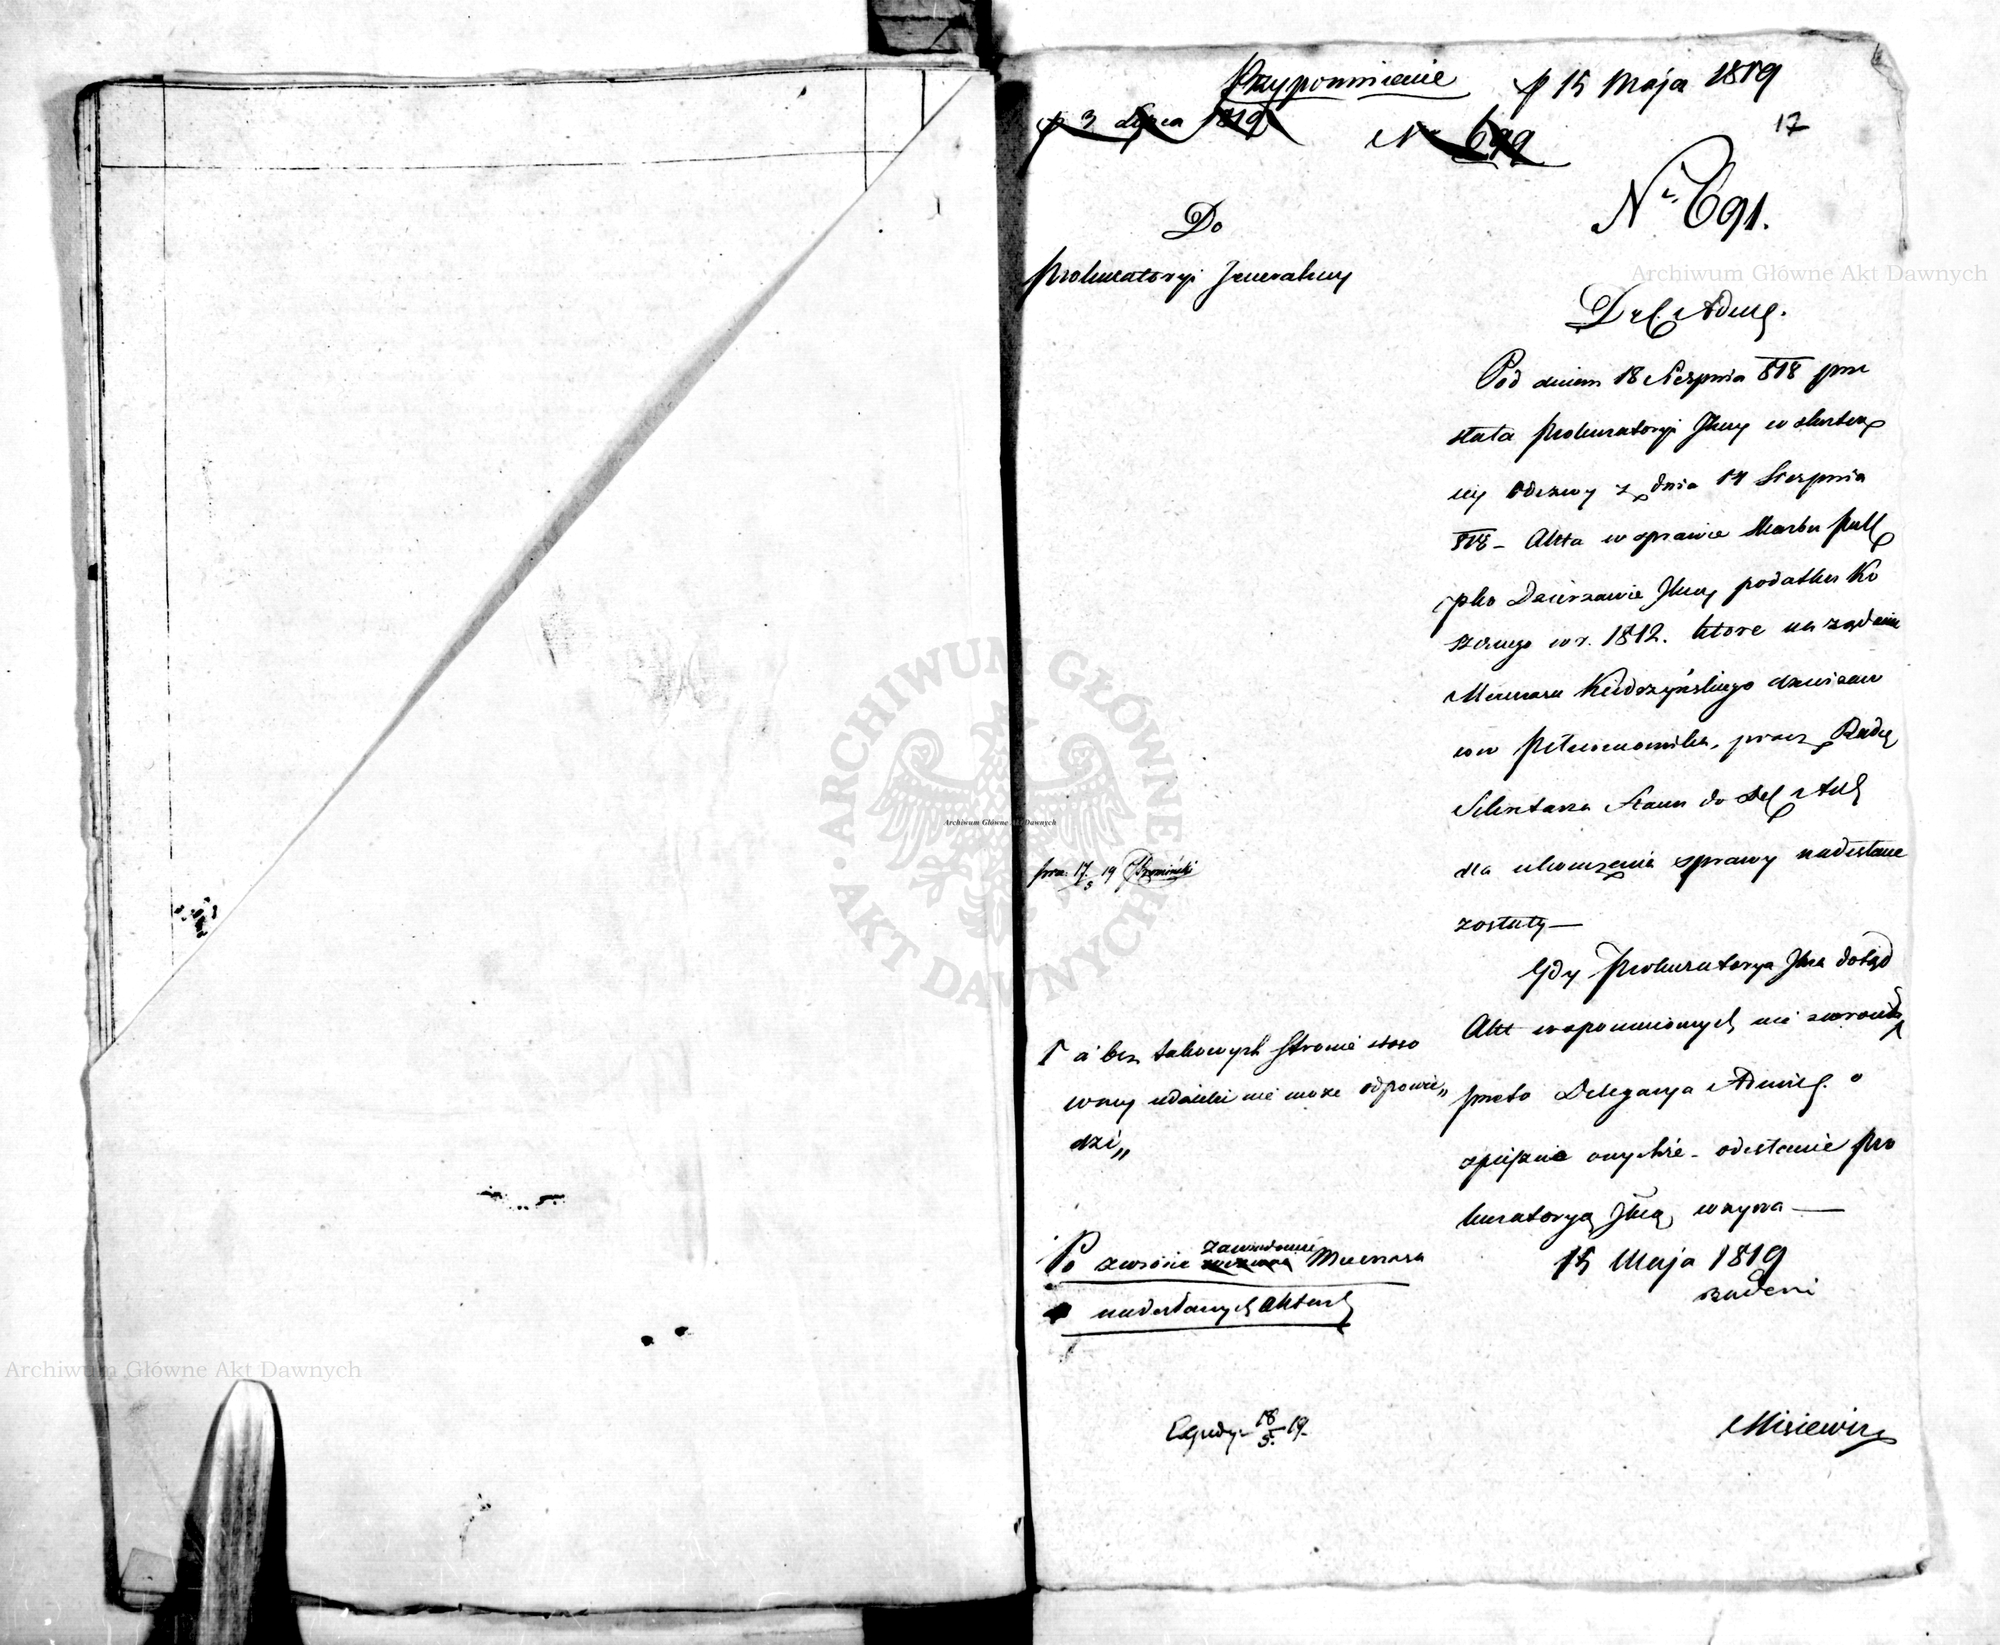 Przypomnienie p 15 Maja 1819
p 3 Lipca 1819
Nr 699
17
Nr. 691.
Do
Prokuratoryi Jeneralney
Del. Adm.
Pod dniem 18 Sierpnia 818 prze
słała Prokuratoryi Jlney w skutku
iey Odezwy z dnia 14 Sierpnia
818 – Akta w sprawie Skarbu Pub
ipko Dzierzawie Jlney podatku Ko
szernego w r. 1812. które na żądanie
Mecenasa Kiedrzyńskiego
Pełnomocnika, przez Radcę
Sekretarza Stanu do Del Adl
dla ukończenia sprawy nadesłane
zostały —
Gdy Prokuratorya Jlna dotąd
Akt wspomnionych nie zwróciła
przeto Delegacya Admi. o
spieszne onychże – odesłanie Pro
kuratoryą Jlną, wzywa —
15 Maja 1819
Badeni
prz. 17/5 19
a bez takowych Stronie stoso
wney udzielić nie może odpowie„
dzi„
Po zwrocie zawiadomić Mecenasa
o nadesłanych Aktach
18/5. 19.
Misiewicz
Archiwum Główne Akt Dawnych
Archiwum Główne Akt Dawnych
Archiwum Główne Akt Dawnych
ARCHIWUM GŁÓWNE AKT DAWNYCH